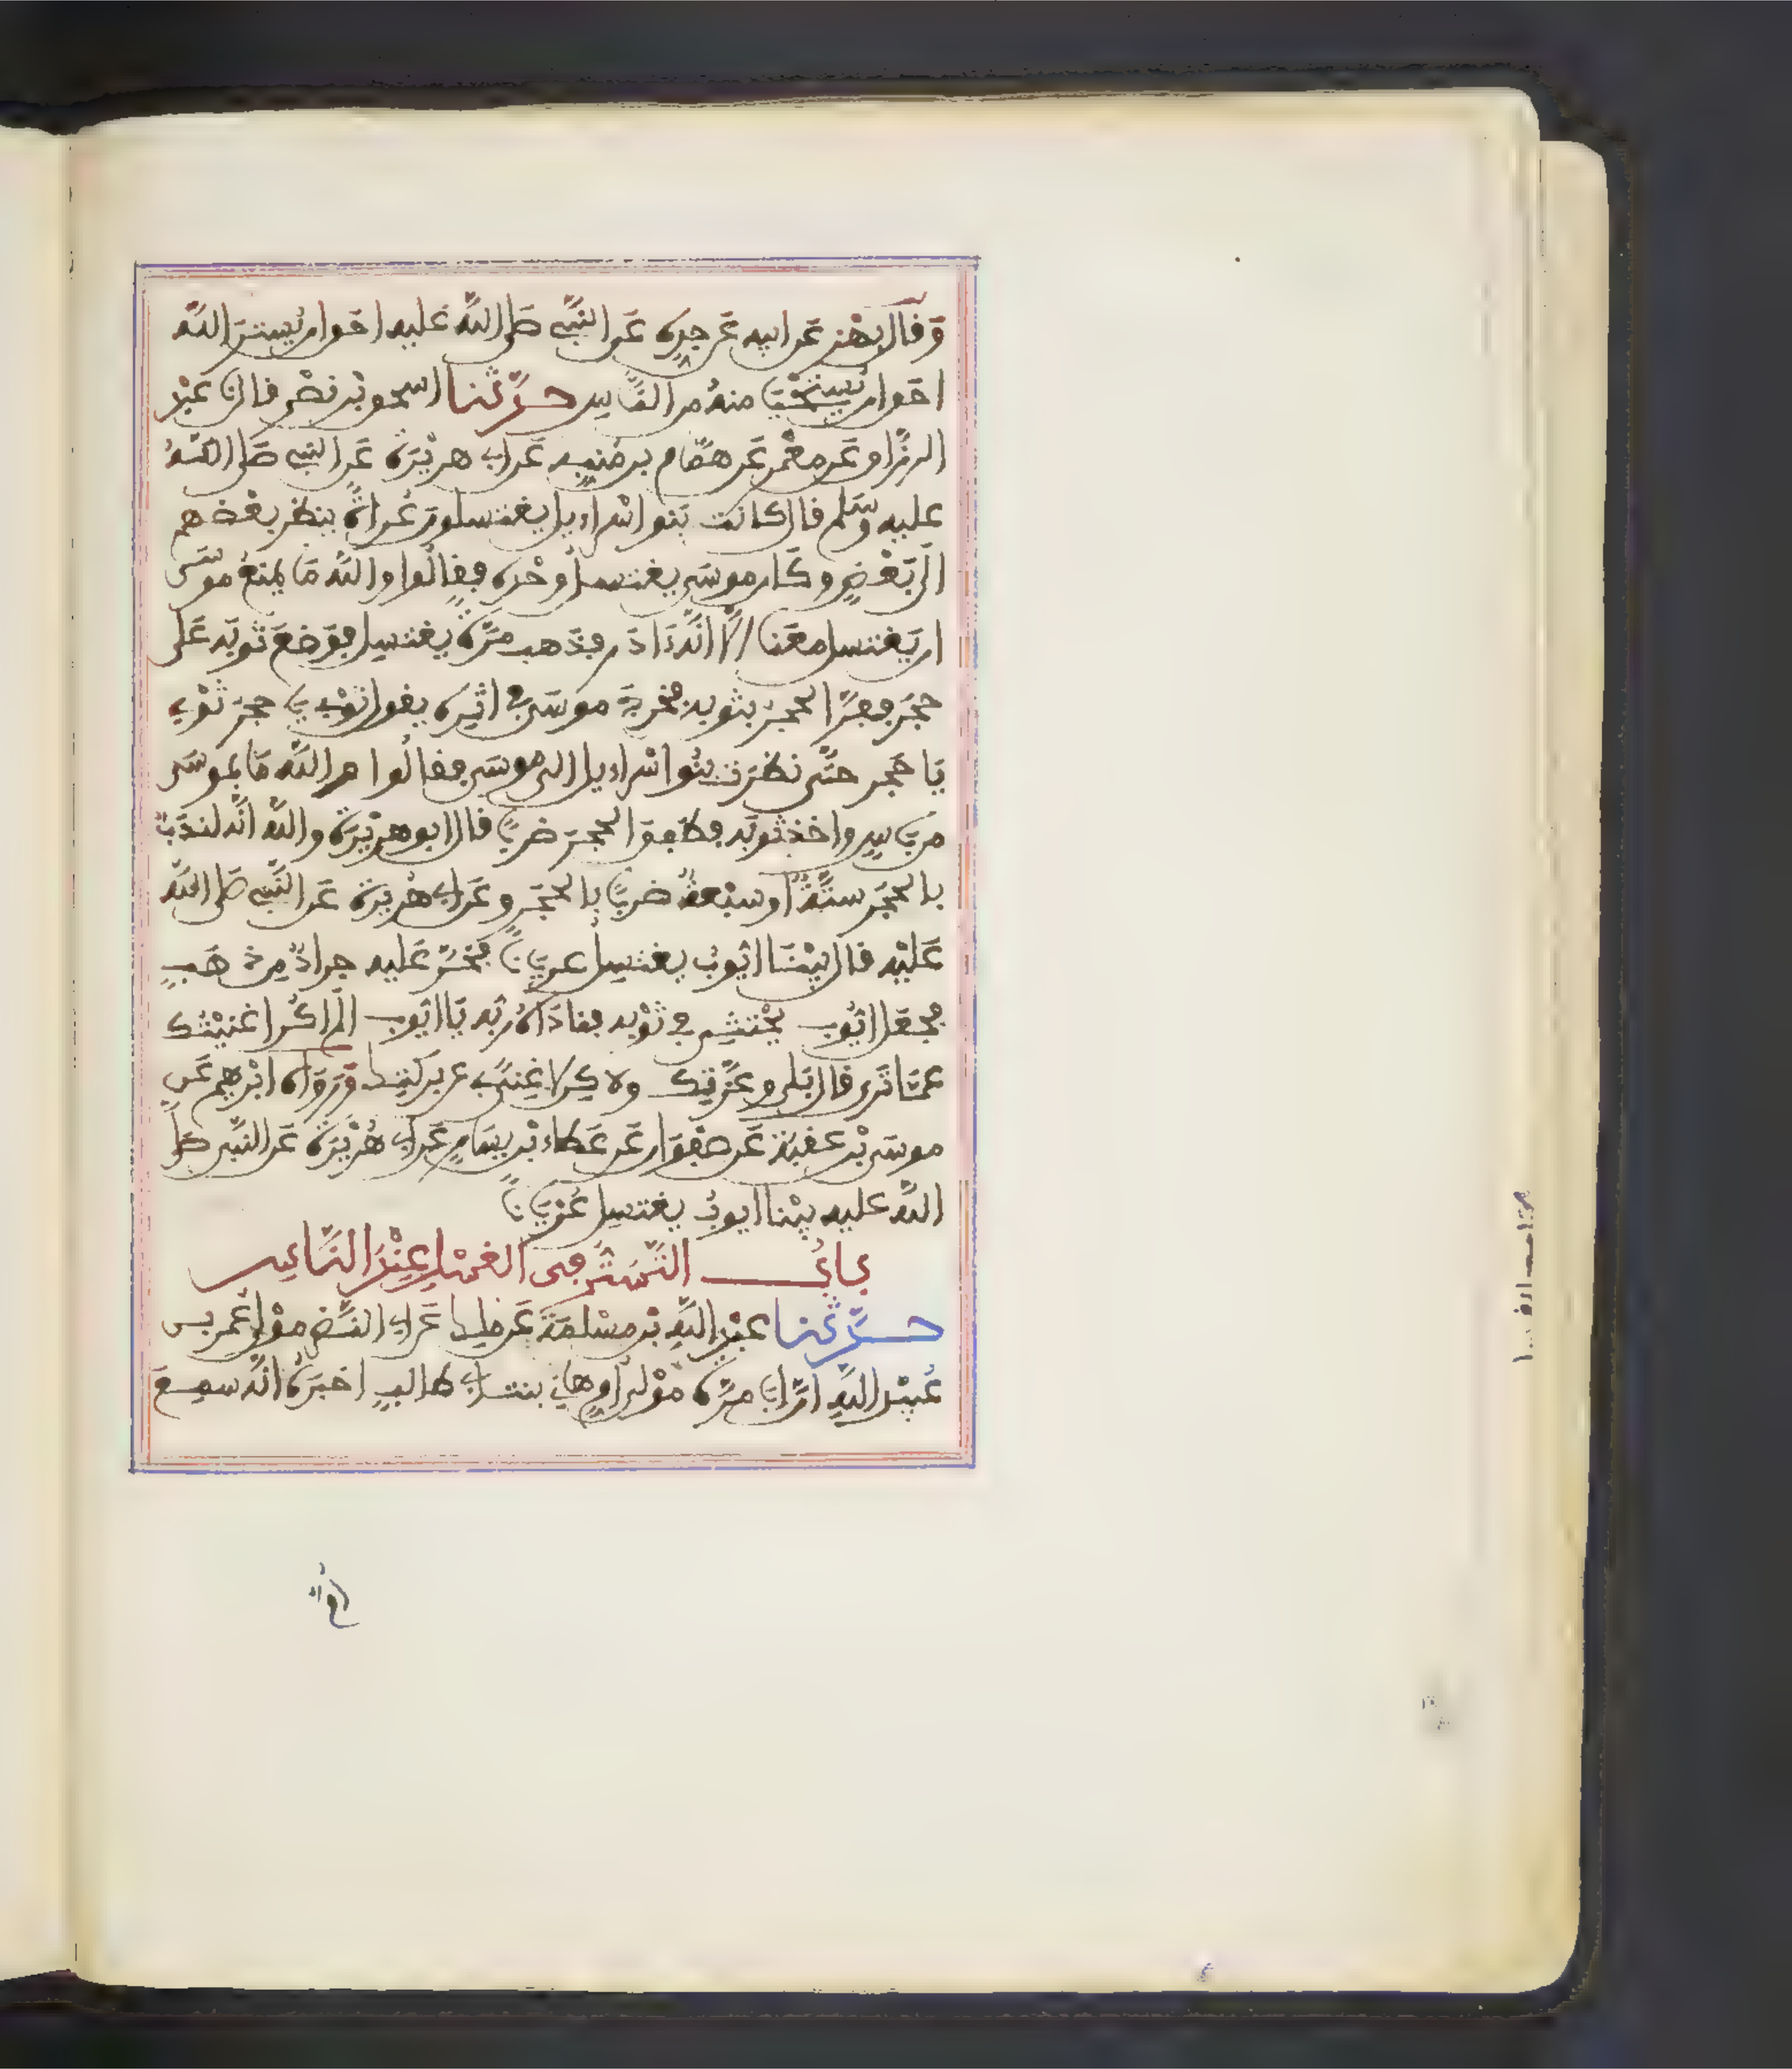 وَقال بَهْز عَن ابيه عَن جدِه عَن النبيّ صَلى اللهُ عَليه احَق ان يُسْتَترَ الله
احَق ان يُسْتَحْيَا منهُ من النّاس حَدّثنا اسحٰق بْن نصْر قال نا عبْد
الرزّاق عَن معْمر عَن همّام بن مُنبِه عَن ابي هرَيْرَة عَن النبي صَلى اللهُ
عليه وسَّلم قال كانت بَنو اسْراءيل يغتسلون عُراةً ينظر بعْضهم
الَى بَعْضٍ وكَان موسَى يغتسل وحْده فقالُوا والله مَا يمنعُ موسَى
ان يَغتسل معَنا الّا انّه ءَادَر فذَهب مَرّة يغتسِل فوَضعَ ثوبَه عَلى
حجَر ففرّ الحجرُ بثوبه فخرجَ موسَى في اثرِه يقول ثوْبي يا حجرُ ثوْبي
يَا حَجر حتّى نظرَت بنُوا اسْراءيل الى موسَى فقالُوا و الله مَا بموسَى
من بَاسٍ واخذ ثوبَه فطَفِقَ الحجرَ ضربًا قال ابو هرَيْرَة والله انّه لندَبٌ
بالحَجَر ستّةٌ او سبْعةٌ ضربًا بالحَجَر وعَن ابي هُريْرة عَن النّبي صَلى الله
عَليْه قال بيْنَا ايّوبُ يغتسِل عريَانًا فخَرّ عَليه جرادٌ مِن ذهَبٍ
فجعَل ايّوبُ يحْتثِي في ثوْبه فنادَاهُ ربّه يَا ايّوبُ الَم اكُن اغنيْتُك
عمّا تَرى قال بَلى وعزّتِك ولاكِن لا غِنىً بي عن بركتِك وَرَوَاه ابْرهيم عَن
موسَى بْن عقبَة عَن صَفوَان عَن عَطاء بْن يسَارٍ عَن ابي هُرَيْرة عَن النبّي صَلى
اللهُ عليه بيْنا ايوبُ يغتسِل عُرْيَانًا
بابُ التّسَتّر في الغسْل عِنْدَ النّاسِ
حدّثنا عبْد اللّهِ بْن مسْلمَة عَن ملك عَن ابي النّضْر موْلى عُمر بن
عُبيْد اللهِ انّ ابَا مرّة موْلى امِّ هانِي بنت ابي طالبٍ اخبَرَهُ انّه سمِعَ